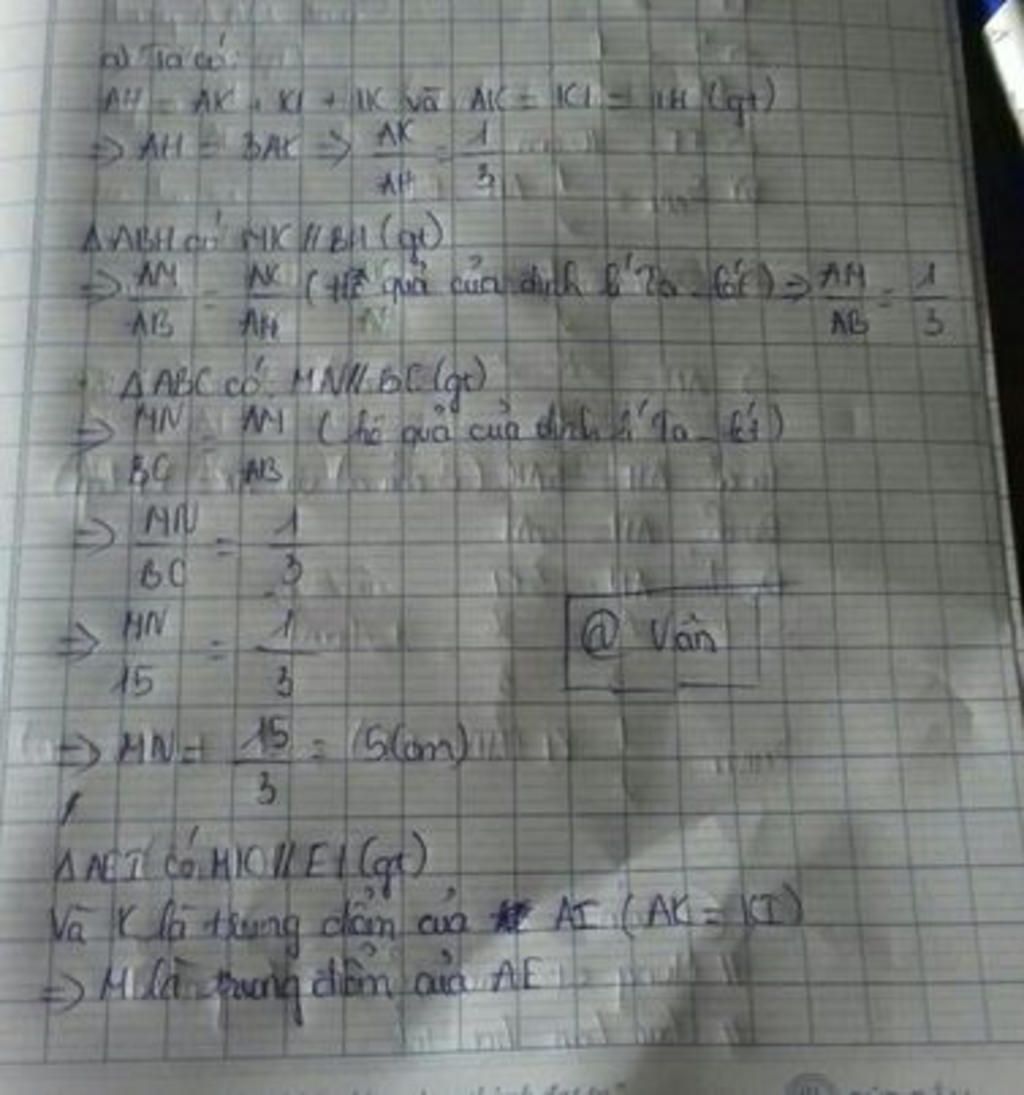 a) Ta có:
AH = AK + KI + IK và AK = KI = IH (gt)
=> AH = 3AK => AK/AH = 1/3
ΔABH có MK // BH (gt)
=> AM/AB = AK/AH (Hệ quả của định lí Ta-lét) => AM/AB = 1/3
ΔABC có: MN // BC (gt)
=> MN/BC = AM/AB (hệ quả của định lí Ta-lét)
=> MN/BC = 1/3
=> MN/15 = 1/3
@ Vân
=> MN = 15/3 = 5(cm)
ΔAEI có MK // EI (gt)
Và K là trung điểm của AI (AK = KI)
=> M là trung điểm của AE